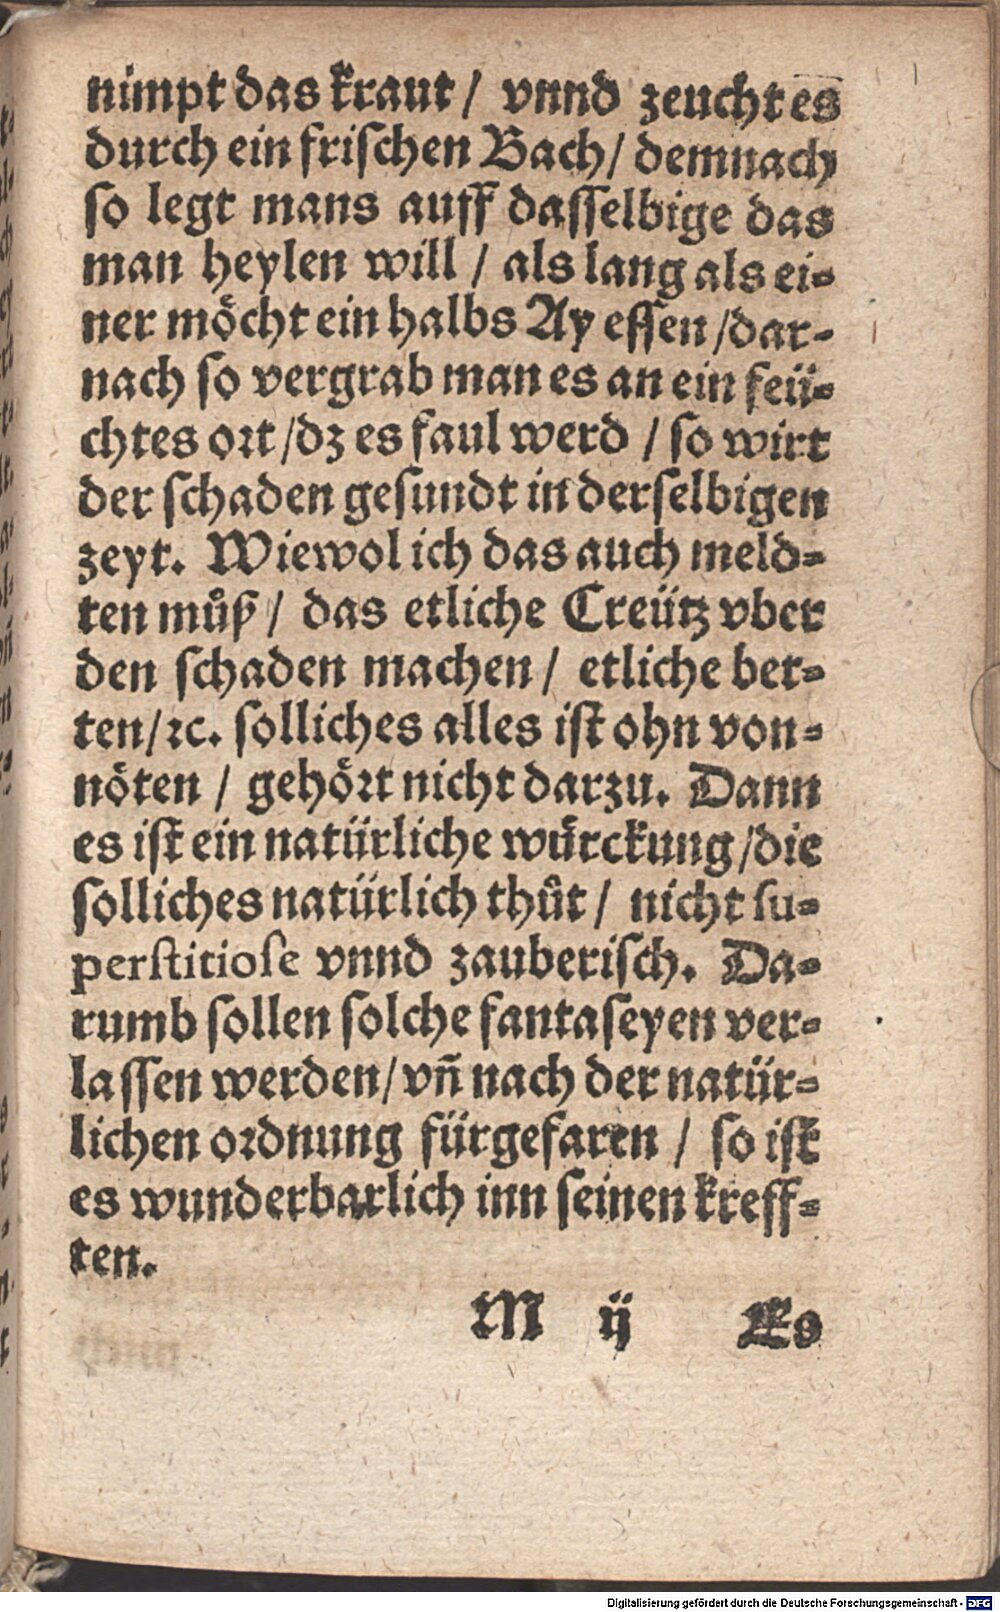 nimpt das kraut / vnnd zeucht es
durch ein frischen Bach / demnach
so legt mans auff dasselbige das
man heylen will / als lang als ei-
ner möcht ein halbs Ay essen / dar-
nach so vergrab man es an ein feü-
chtes ort / dz es faul werd / so wirt
der schaden gesundt in derselbigen
zeyt. Wiewol ich das auch meld-
ten muͦß / das etliche Creütz vber
den schaden machen / etliche bet-
ten / ꝛc. solliches alles ist ohn von-
nöten / gehört nicht darzu. Dann
es ist ein natürliche würckung / die
solliches natürlich thuͦt / nicht su-
perstitiose vnnd zauberisch. Da-
rumb sollen solche fantaseyen ver-
lassen werden / vñ nach der natür-
lichen ordnung fürgefaren / so ist
es wunderbarlich inn seinen kreff-
ten.
M ij Es
Digitalisierung gefördert durch die Deutsche Forschungsgemeinschaft - DFG